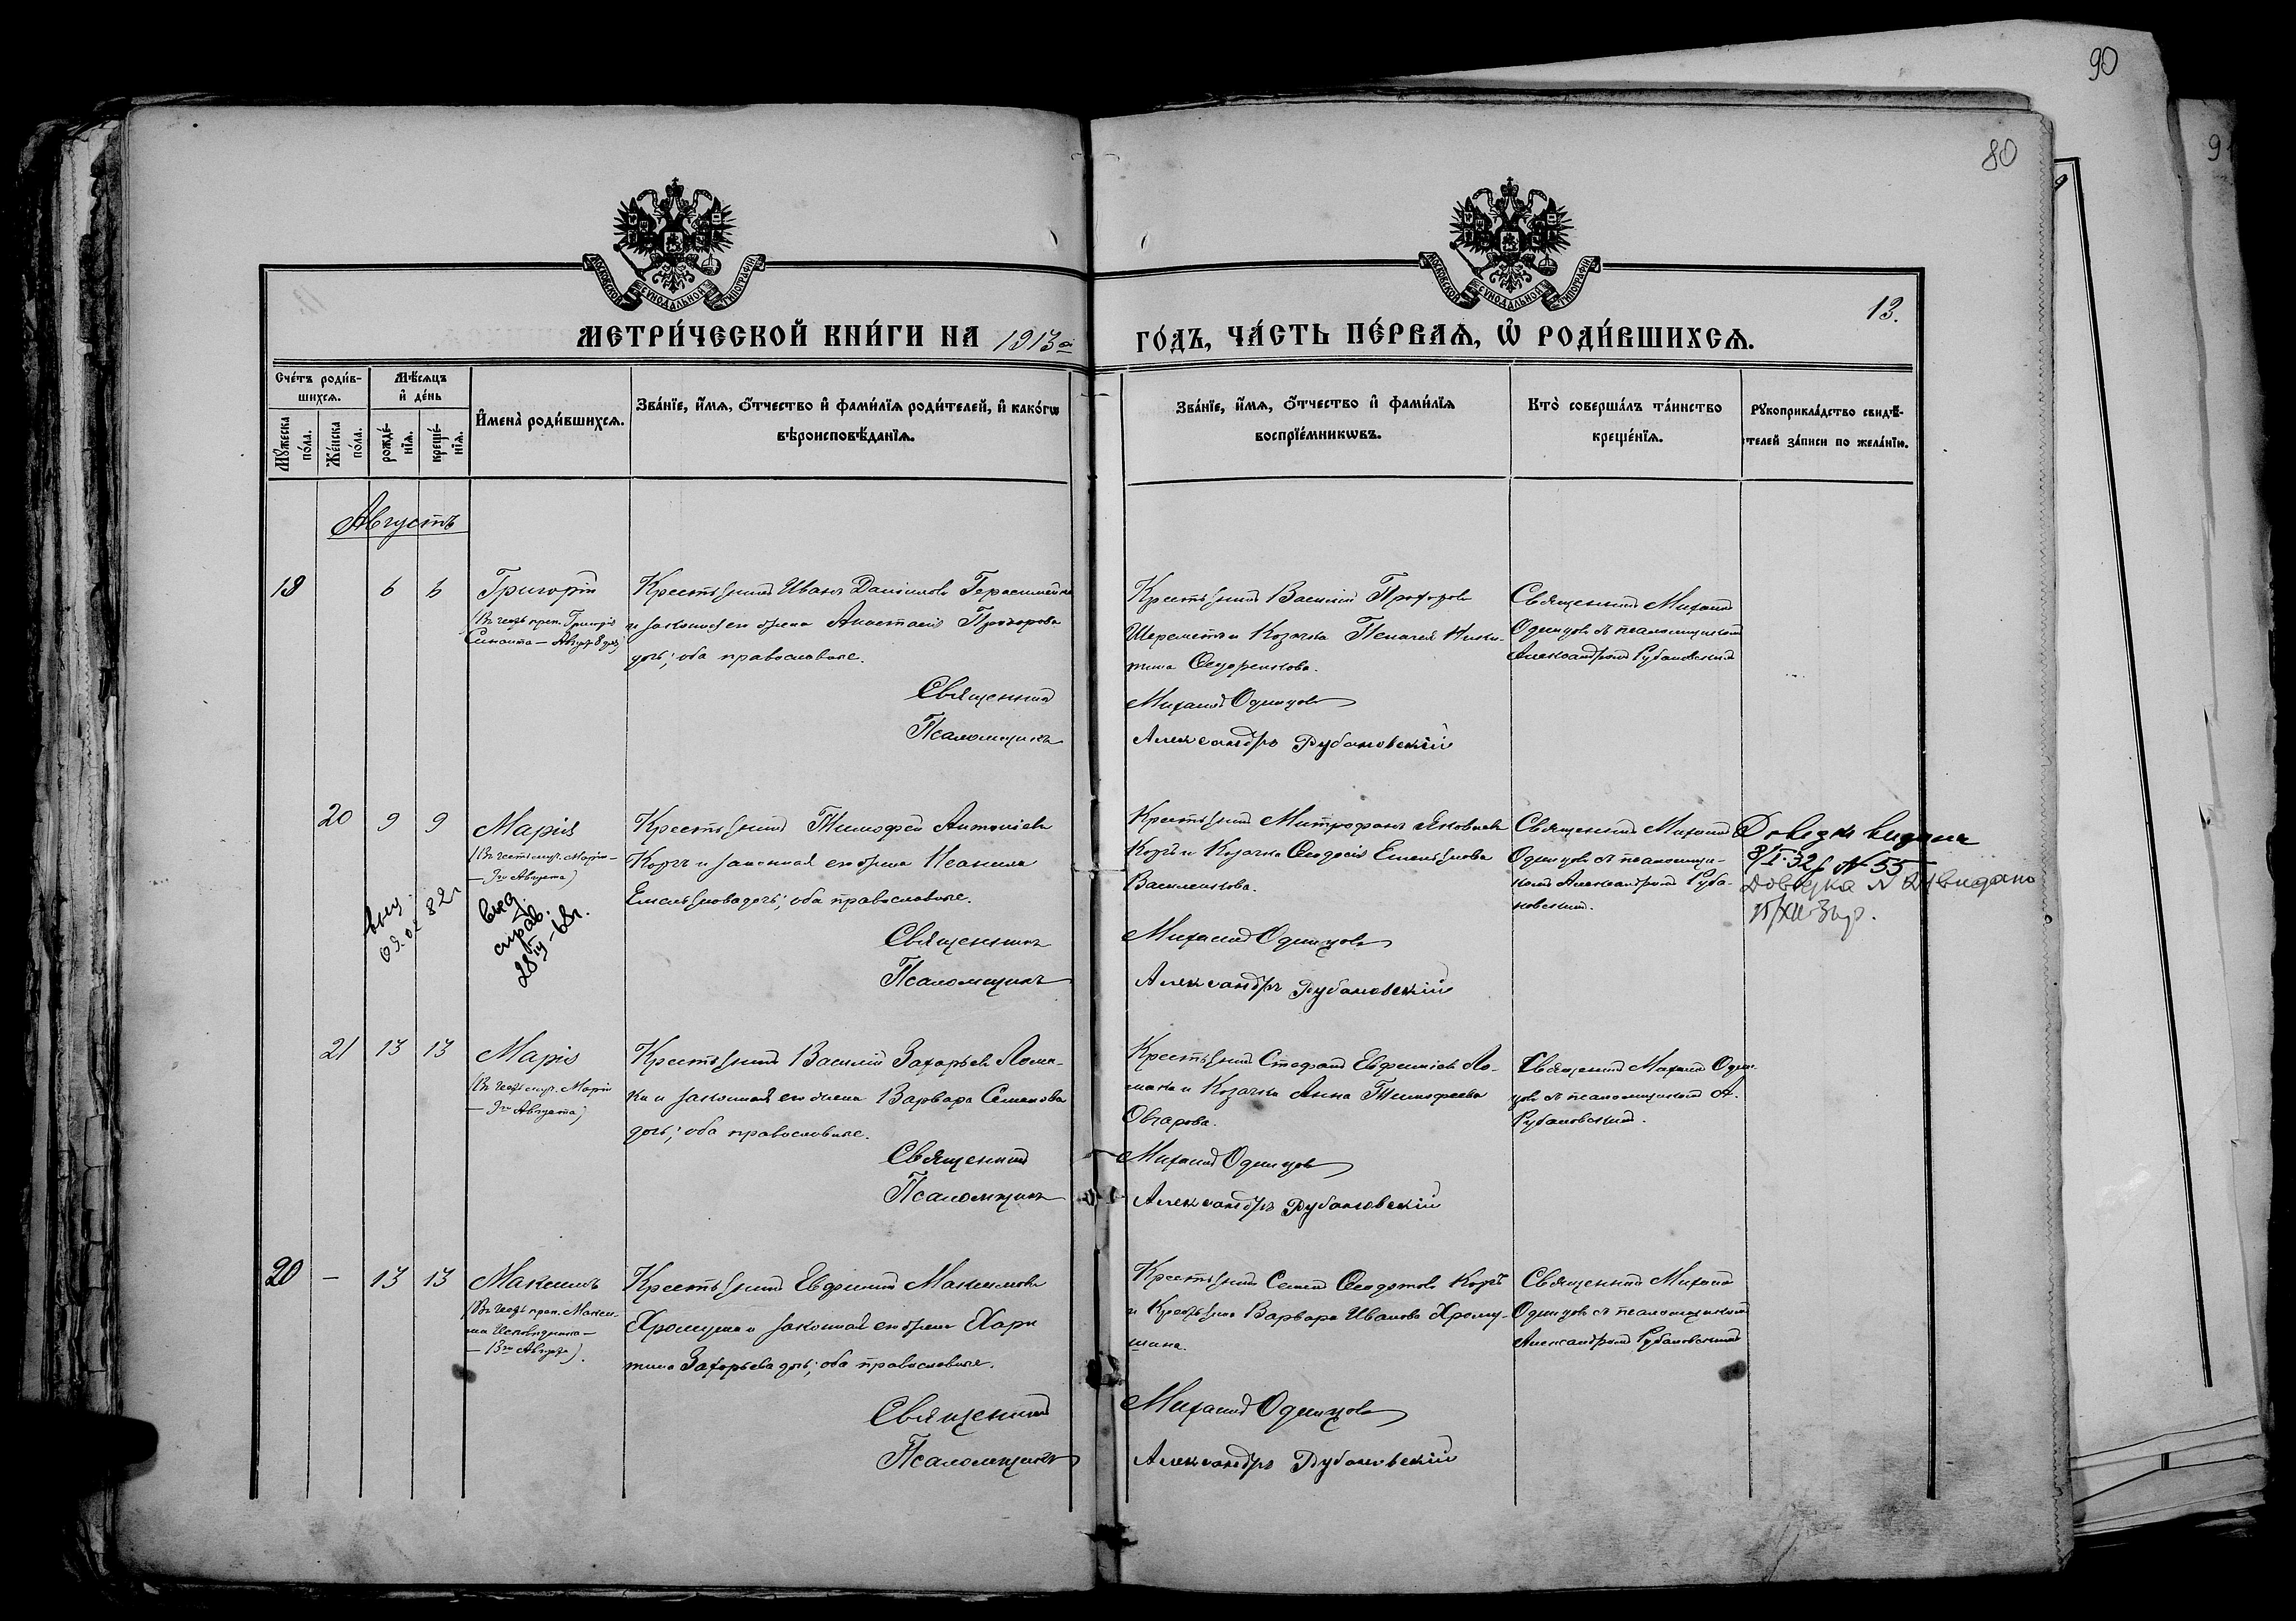 90
80
9
МОСКОВСКОЙ СѴНОДАЛЬНОЙ ТИПОГРАФІИ
МОСКОВСКОЙ СѴНОДАЛЬНОЙ ТИПОГРАФІИ
13.
МЕТРИ́ЧЕСКОЙ КНИ́ГИ НА 1913й ГО́ДЪ, ЧА́СТЬ ПЕ́РВАѦ, Ѡ҆ РОДИ́ВШИХСѦ.
Сче́тъ роди́в-
шихсѧ.
Мꙋ́жеска по́ла.
Же́нска по́ла.
Мѣ́сѧцъ и҆ де́нь
рожде́-
нїѧ.
креще́-
нїѧ.
И҆мена̀ роди́вшихсѧ.
Зва́нїе, и҆́мѧ, ѻ҆́тчество и҆ фами́лїѧ роди́телей, и҆ како́гѡ
вѣроисповѣ́данїѧ.
Зва́нїе, и҆́мѧ, ѻ҆́тчество и҆ фами́лїѧ
воспрїе́мникѡвъ.
Кто̀ соверша́лъ та́инство
креще́нїѧ.
Рꙋкоприкла́дство свидѣ́-
телей за́писи по жела́нїю.
Августъ
19 6 6
Григорій
(Въ честь преп. Григорія
Синаита — Август 8 дня)
Крестьянинъ Иванъ Даніиловъ Герасименко
и законная его жена Анастасія Прохорова
дочь; оба православные.
Священникъ
Псаломщикъ
Крестьянинъ Василій Прохоровъ
Шереметъ и Козачка Пелагея Ники-
тина Ѳедоренкова.
Михаилъ Одинцовъ
Александръ Рубановскій
Священникъ Михаилъ
Одинцовъ съ псаломщикомъ
Александромъ Рубановскимъ
20 9 9
Марія
(Въ честь муч. Маріи —
— 9го Августа)
выд.
09.02 82г
выд.
справ.
28/III-68г.
Крестьянинъ Тимофей Антоніевъ
Коржъ и законная его жена Неанила
Емельянова дочь; оба православные.
Священникъ
Псаломщикъ
Крестьянинъ Митрофанъ Яковлевъ
Коржъ и Козачка Ѳеодосія Емельянова
Василенкова.
Михаилъ Одинцовъ
Александръ Рубановскій
Священникъ Михаилъ
Одинцовъ съ псаломщи-
комъ Александромъ Руба-
новскимъ.
Довідка видана
8/I-32 р №55
Довідка № видано
15/XII-34р.
21 13 13
Марія
(Въ честь муч. Маріи
— 9го Августа)
Крестьянинъ Василій Захарьевъ Лома-
ка и законная его жена Варвара Семенова
дочь; оба православные.
Священникъ
Псаломщикъ
Крестьянинъ Стефанъ Евфиміевъ Ло-
мака и Козачка Анна Тимофеева
Овчарова.
Михаилъ Одинцовъ
Александръ Рубановскій
Священникъ Михаилъ Один-
цовъ съ псаломщикомъ А.
Рубановскимъ.
20 — 13 13
Максимъ
(Въ честь преп. Макси-
ма Исповѣдника —
— 13го Августа).
Крестьянинъ Евфимій Максимовъ
Хромуша и законная его жена Хари
тина Захарьева дочь; оба православные.
Священникъ
Псаломщикъ
Крестьянинъ Семенъ Ѳеодотовъ Коржъ
и Крестьянка Варвара Иванова Хрому-
шина.
Михаилъ Одинцовъ
Александръ Рубановскій
Священникъ Михаилъ
Одинцовъ съ псаломщикомъ
Александромъ Рубановскимъ